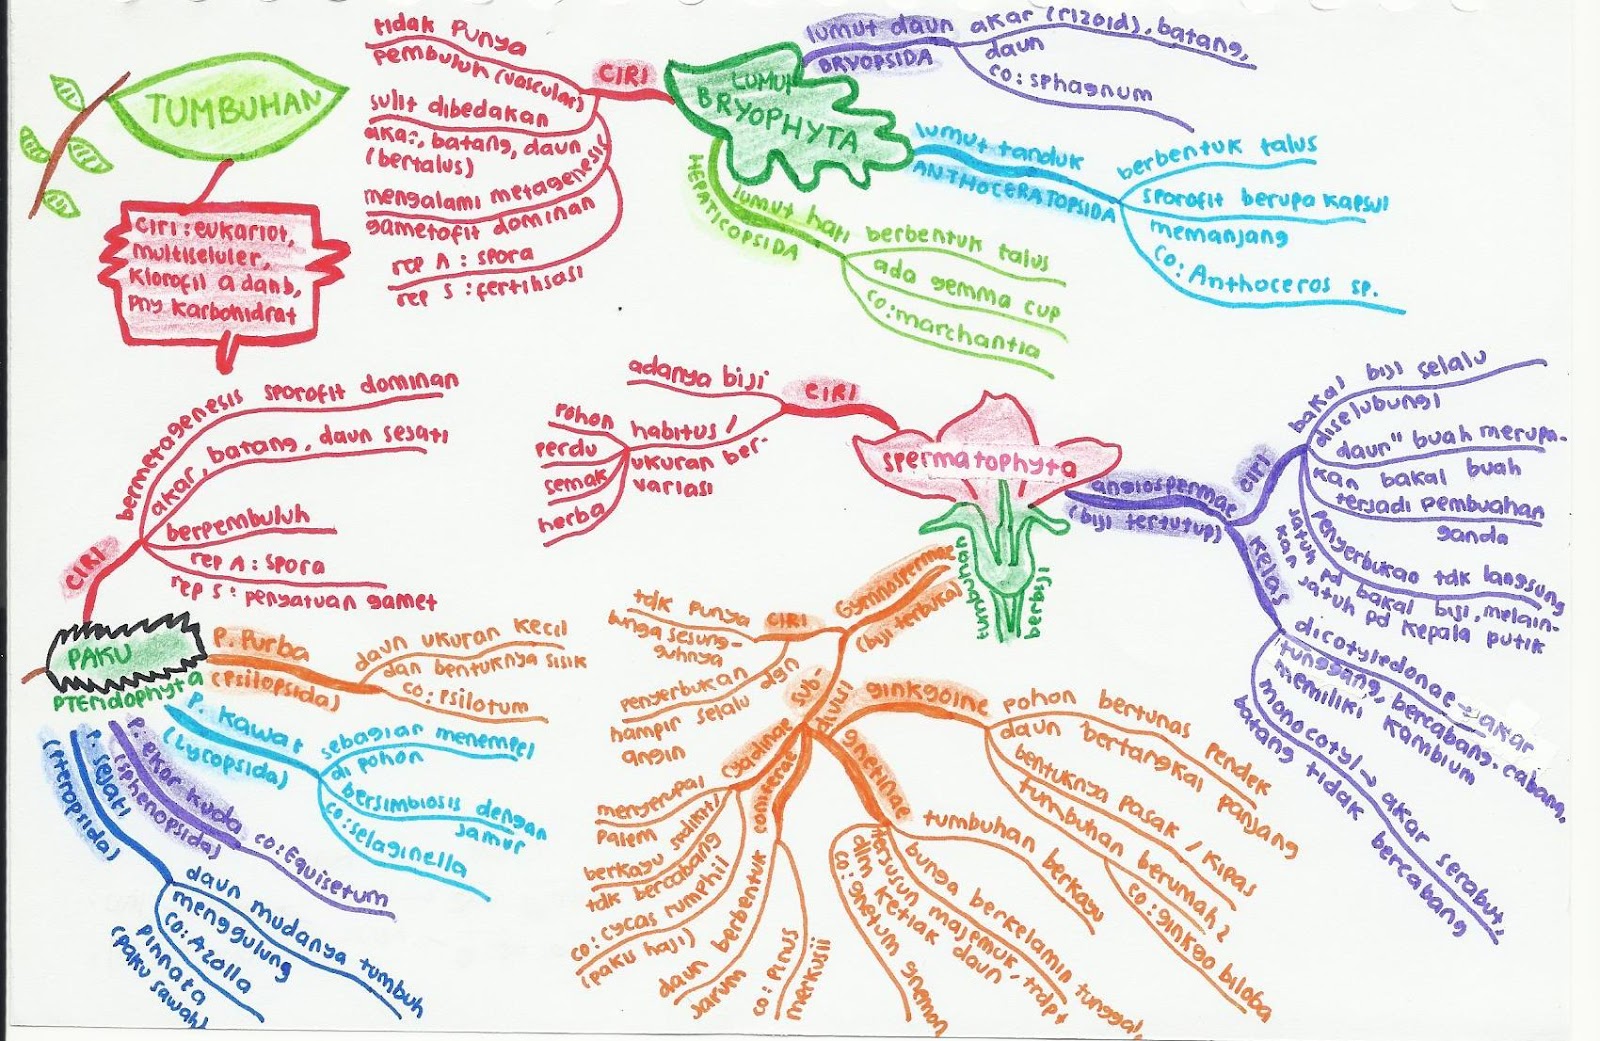 TUMBUHAN
ciri : eukariot,
multiseluler,
klorofil a dan b,
pny karbohidrat
LUMUT
BRYOPHYTA
CIRI
tidak punya
pembuluh (vascular)
sulit dibedakan
akar, batang, daun
(bertalus)
mengalami metagenesis
gametofit dominan
rep A : spora
rep S : fertilisasi
lumut daun
BRYOPSIDA
akar (rizoid), batang,
daun
co : sphagnum
lumut tanduk
ANTHOCERATOPSIDA
berbentuk talus
sporofit berupa kapsul
memanjang
co : Anthoceros sp.
lumut hati
HEPATICOPSIDA
berbentuk talus
ada gemma cup
co : marchantia
PAKU
PTERIDOPHYTA
CIRI
bermetagenesis sporofit dominan
akar, batang, daun sejati
berpembuluh
rep A : spora
rep S : penyatuan gamet
P. Purba
(Psilopsida)
daun ukuran kecil
dan bentuknya sisik
co : psilotum
P. kawat
(Lycopsida)
sebagian menempel
di pohon
bersimbiosis dengan
jamur
co : selaginella
P. ekor kuda
(sphenopsida)
co : Equisetum
P. sejati
(pteropsida)
daun mudanya tumbuh
menggulung
co : Azolla
pinnata
(paku sawah)
spermatophyta
tumbuhan
berbiji
CIRI
adanya biji
habitus /
ukuran ber-
variasi
pohon
perdu
semak
herba
angiospermae
(biji tertutup)
CIRI
bakal biji selalu
diselubungi
daun" buah merupa-
kan bakal buah
terjadi pembuahan
ganda
penyerbukan tdk langsung
jatuh pd bakal biji, melain-
kan jatuh pd kepala putik
KELAS
dicotyledonae → akar
tunggang, bercabang-cabang,
memiliki kambium
monocotyl → akar serabut,
batang tidak bercabang
Gymnospermae
(biji terbuka)
CIRI
tdk punya
bunga sesung-
guhnya
penyerbukan
hampir selalu dgn
angin
sub-
divisi
ginkgoine
pohon bertunas pendek
daun bertangkai panjang
bentuknya pasak / kipas
tumbuhan berumah 2
co : ginkgo biloba
gnetinae
tumbuhan berkayu
bunga berkelamin tunggal,
tersusun majemuk, trdpt
dlm ketiak daun
co : gnetum gnemon
coniferae
daun berbentuk
jarum
co : pinus
merkusii
cyadinae
menyerupai
palem
berkayu (sedikit)
tdk bercabang
co : cycas rumphii
(paku haji)